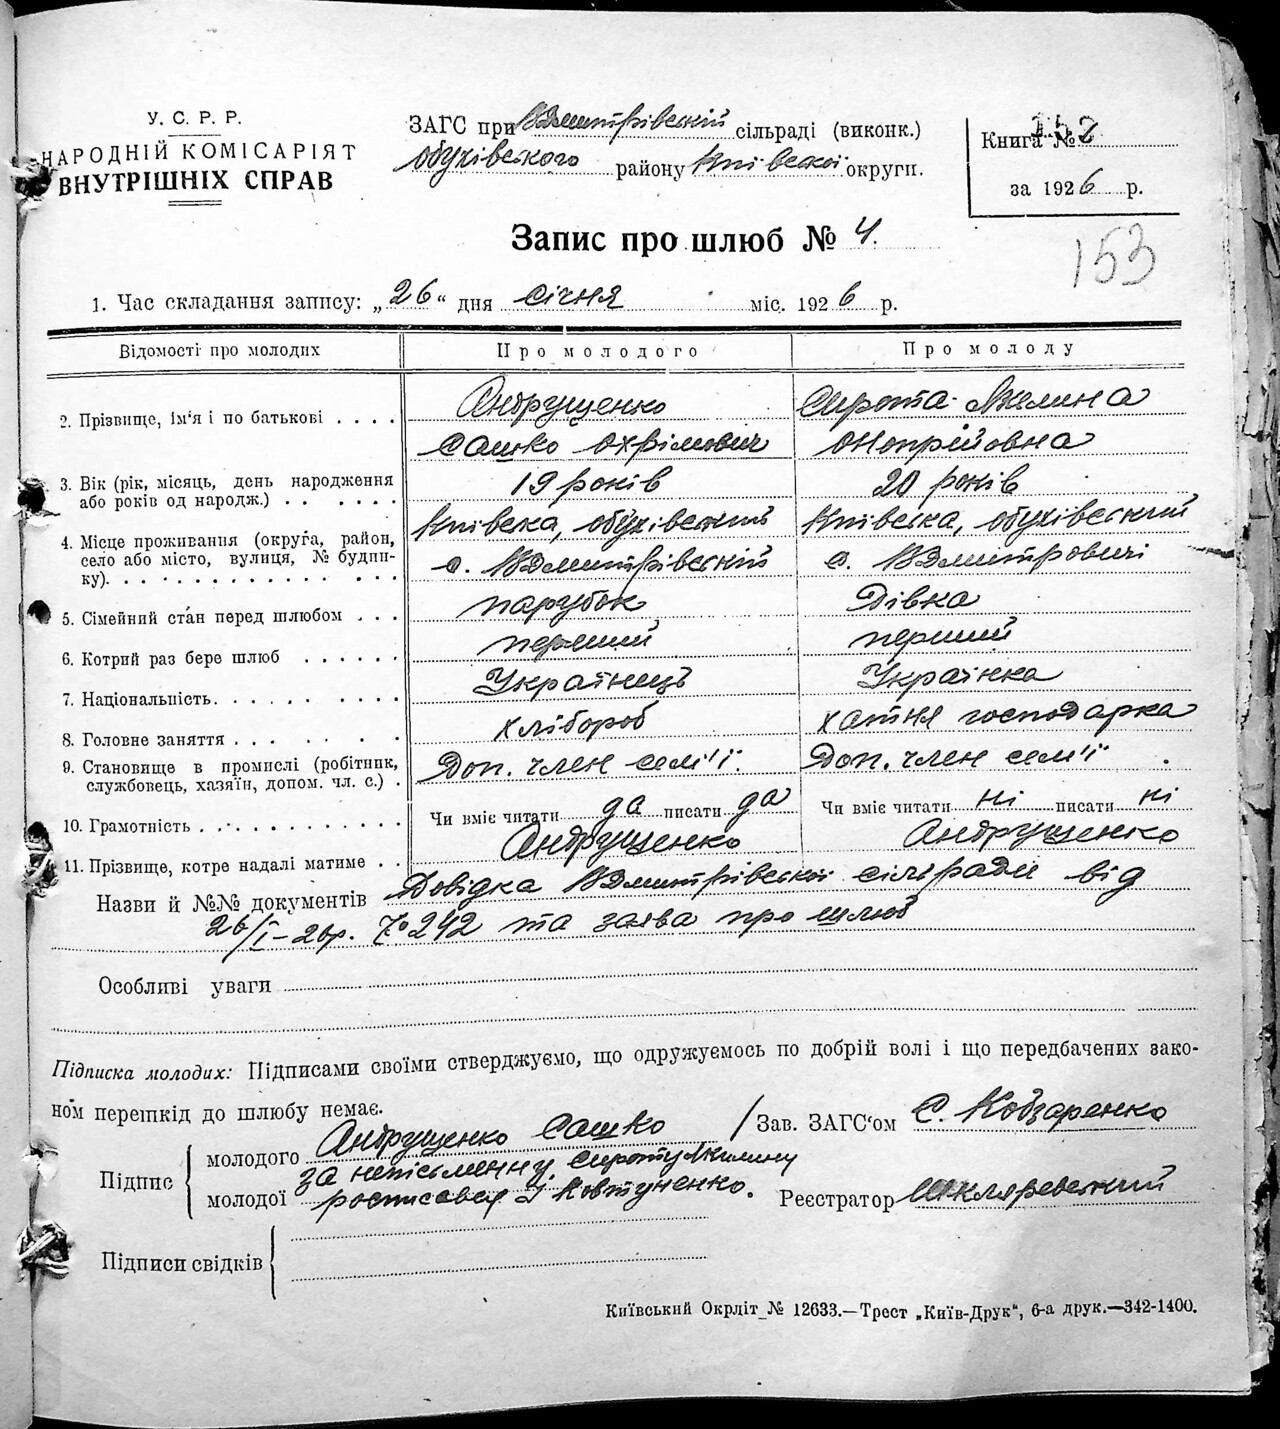 У. С. Р. Р.
НАРОДНІЙ КОМІСАРІЯТ
ВНУТРІШНІХ СПРАВ
ЗАГС при ВДмитрівській сільраді (виконк.)
Обухівського району Київської округи.
Книга №
за 1926 р.
153
Запис про шлюб № 4.
1. Час складання запису: „26“ дня січня міс. 1926 р.
Відомості про молодих Про молодого Про молоду
2. Прізвище, ім'я і по батькові . . . . Андрущенко Сирота Якилина
Сашко Охрімович Онопрійовна
3. Вік (рік, місяць, день народження або років од народж.) . . . . . . 19 років 20 років
4. Місце проживання (округа, район, село або місто, вулиця, № будинку). . . . . . . . . . . . . . . Київська, обухівський Київська, обухівський
с. ВДмитрівський с. ВДмитровичі
5. Сімейний стан перед шлюбом . . . парубок Дівка
6. Котрий раз бере шлюб . . . . . . перший перший
7. Національність. . . . . . . . . . Українець Українка
8. Головне заняття . . . . . . . . хлібороб хатня господарка
9. Становище в промислі (робітник, службовець, хазяїн, допом. чл. с.) . Доп. член сем'ї. Доп. член сем'ї.
10. Грамотність . . . . . . . . . . . . Чи вміє читати да писати да Чи вміє читати ні писати ні
11. Прізвище, котре надалі матиме . . Андрущенко Андрущенко
Назви й №№ документів Довідка ВДмитрівської сільради від
26/I–26р. № 242 та заява про шлюб
Особливі уваги
Підписка молодих: Підписами своїми стверджуємо, що одружуємось по добрій волі і що передбачених зако-
ном перешкід до шлюбу немає.
Підпис молодого Андрущенко Сашко / Зав. ЗАГС'ом С. Кобзаренко
за неписьменну. Сироту Якилину
молодої росписався І Ковтуненко. Реєстратор Шкляревський
Підписи свідків
Київський Окрліт № 12633.—Трест „Київ-Друк“, 6-а друк.—342-1400.